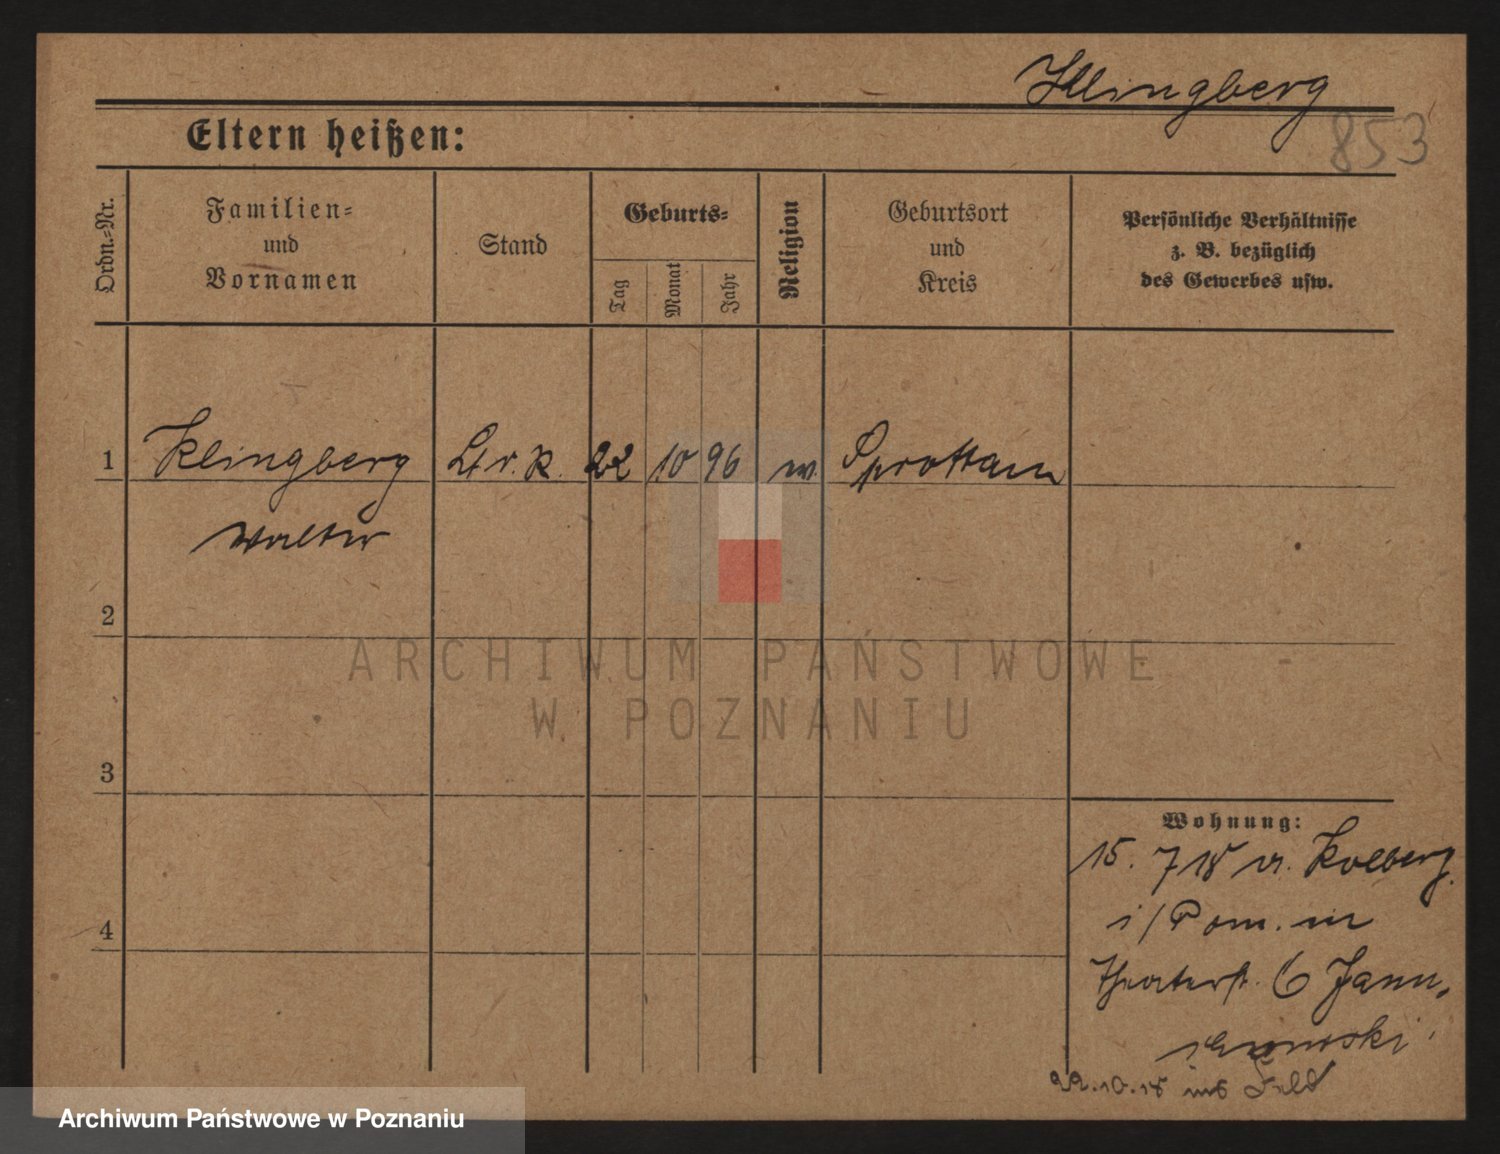 Klingberg
853
Eltern heißen:
Ordn.=Nr.
Familien=
und
Vornamen
Stand
Geburts=
Tag
Monat
Jahr
Religion
Geburtsort
und
Kreis
Persönliche Verhältnisse
z. B. bezüglich
des Gewerbes usw.
1 Klingberg Lt. v. K. 22 10 96 Sprottau
Walter
2
ARCHIWUM PAŃSTWOWE
W POZNANIU
3
Wohnung:
15. 7 18 v. Kolberg
i/Pom. in
4
Theaterst. 6
22.10.18 ins Feld
Archiwum Państwowe w Poznaniu